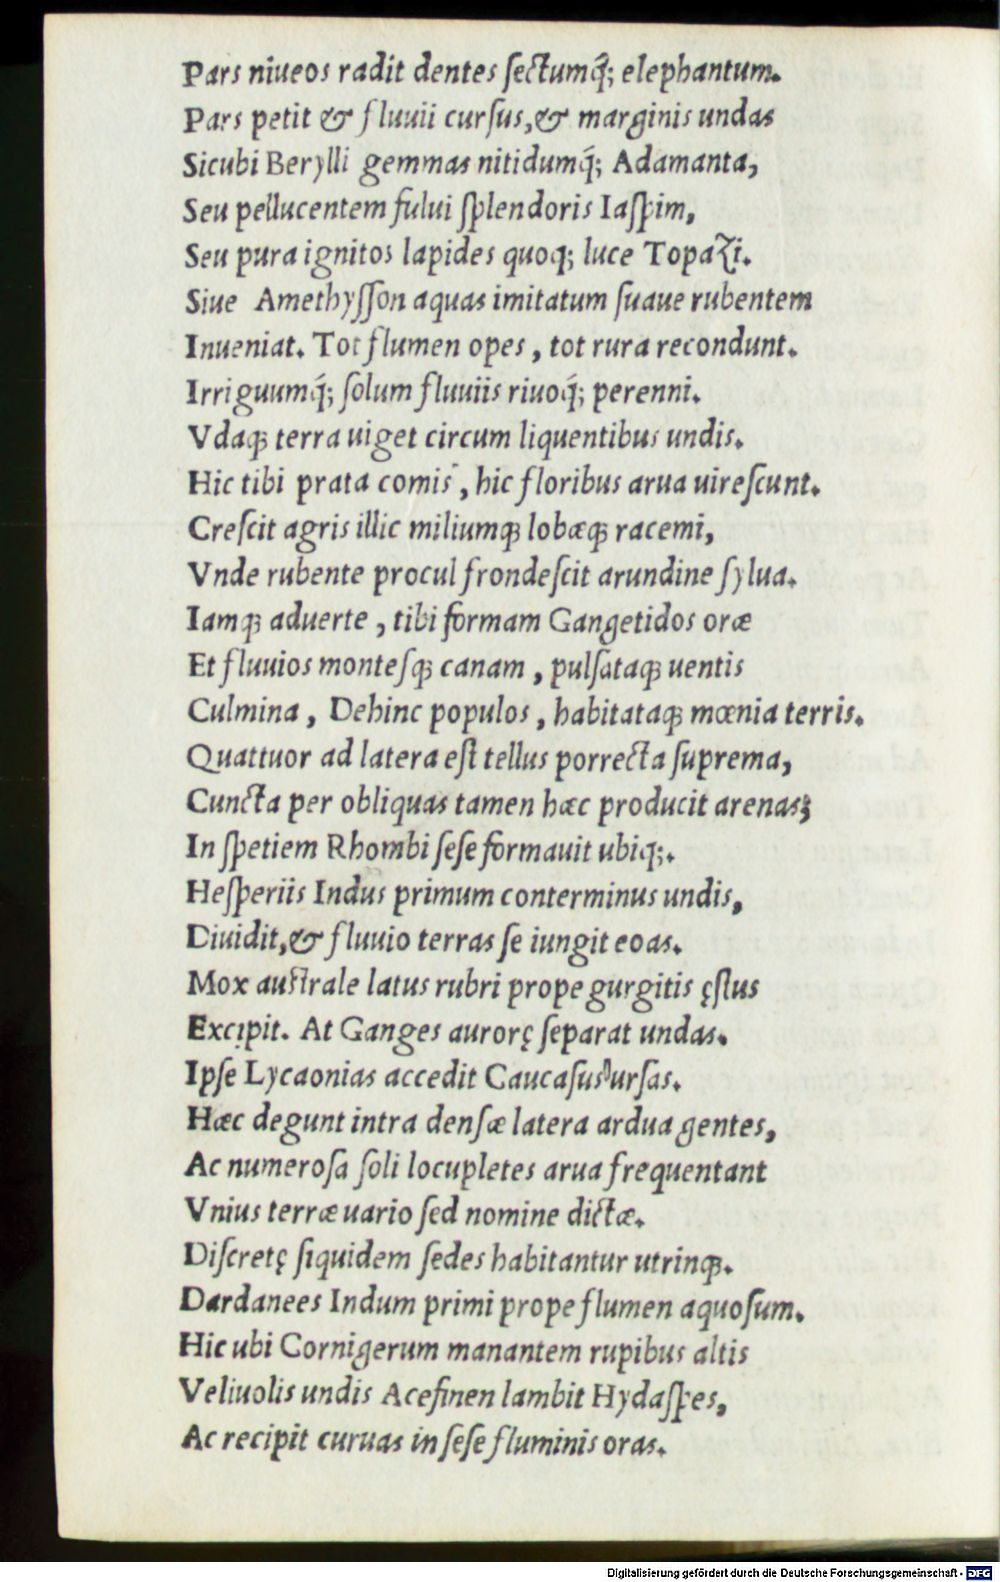 Pars niueos radit dentes ſectumq́; elephantum.
Pars petit & fluuii curſus,& marginis undas
Sicubi Berylli gemmas nitidumq́; Adamanta,
Seu pellucentem fului ſplendoris Iaſpim,
Seu pura ignitos lapides quoq; luce Topazi.
Siue Amethyſſon aquas imitatum ſuaue rubentem
Inueniat. Tot flumen opes, tot rura recondunt.
Irriguumq́; ſolum fluuiis riuoq́; perenni.
Vdaq; terra uiget circum liquentibus undis.
Hic tibi prata comis, hic floribus arua uireſcunt.
Creſcit agris illic miliumq; lobæq; racemi,
Vnde rubente procul frondeſcit arundine ſylua.
Iamq; aduerte, tibi formam Gangetidos oræ
Et fluuios monteſq; canam, pulſataq; uentis
Culmina, Dehinc populos, habitataq; mœnia terris.
Quattuor ad latera eſt tellus porrecta ſuprema,
Cuncta per obliquas tamen hæc producit arenas;
In ſpetiem Rhombi ſeſe formauit ubiq;.
Heſperiis Indus primum conterminus undis,
Diuidit,& fluuio terras ſe iungit eoas.
Mox auſtrale latus rubri prope gurgitis ęſtus
Excipit. At Ganges aurorę ſeparat undas.
Ipſe Lycaonias accedit Caucaſus urſas.
Hæc degunt intra denſæ latera ardua gentes,
Ac numeroſa ſoli locupletes arua frequentant
Vnius terræ uario ſed nomine dictæ.
Diſcretę ſiquidem ſedes habitantur utrinq;.
Dardanees Indum primi prope flumen aquoſum.
Hic ubi Cornigerum manantem rupibus altis
Veliuolis undis Aceſinen lambit Hydaſpes,
Ac recipit curuas in ſeſe fluminis oras.
Digitalisierung gefördert durch die Deutsche Forschungsgemeinschaft - DFG